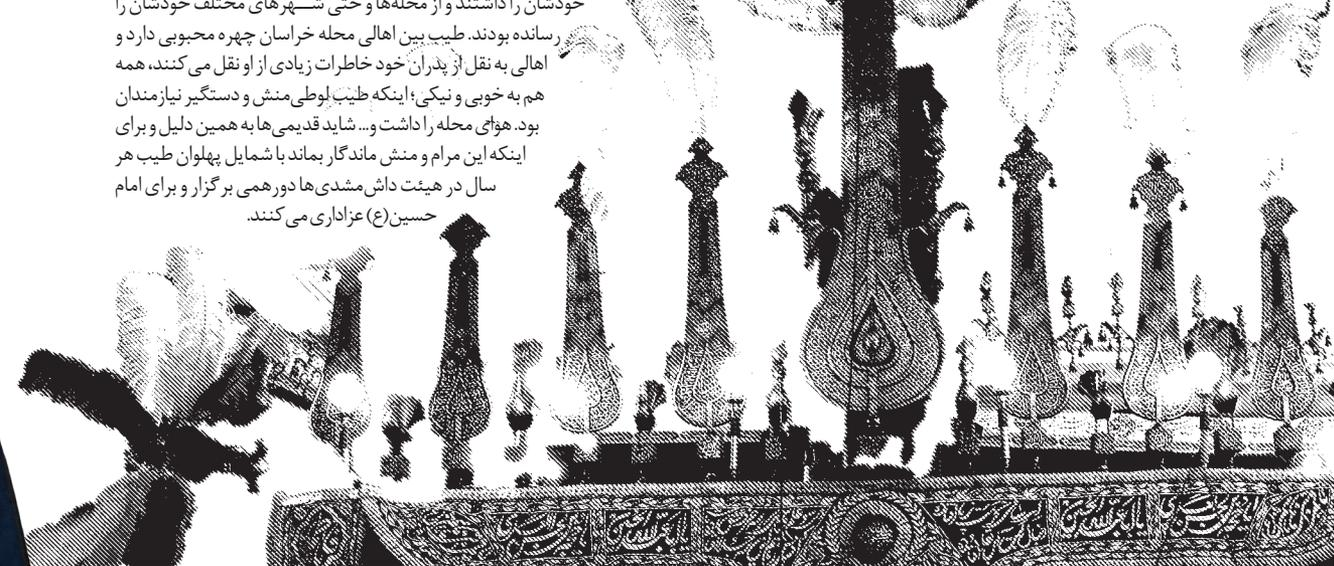 خودشان را داشتند و از محله‌ها و حتی شـــهرهای مختلف خودشان را
رسانده بودند. طیب بین اهالی محله خراسان چهره محبوبی دارد و
اهالی به نقل از پدران خود خاطرات زیادی از او نقل می‌کنند، همه
هم به خوبی و نیکی؛ اینکه طیب لوطی‌منش و دستگیر نیازمندان
بود. هوای محله را داشت و... شاید قدیمی‌ها به همین دلیل و برای
اینکه این مرام و منش ماندگار بماند با شمایل پهلوان طیب هر
سال در هیئت داش‌مشدی‌ها دورهمی برگزار و برای امام
حسین(ع) عزاداری می‌کنند.
یا اباعبدالله الحسین
یا اباعبدالله الحسین